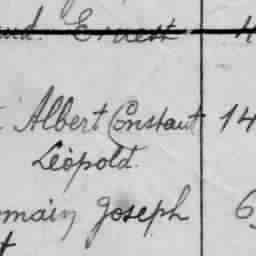 Ernest
Albert Constant 14
Léopold
main Joseph 6